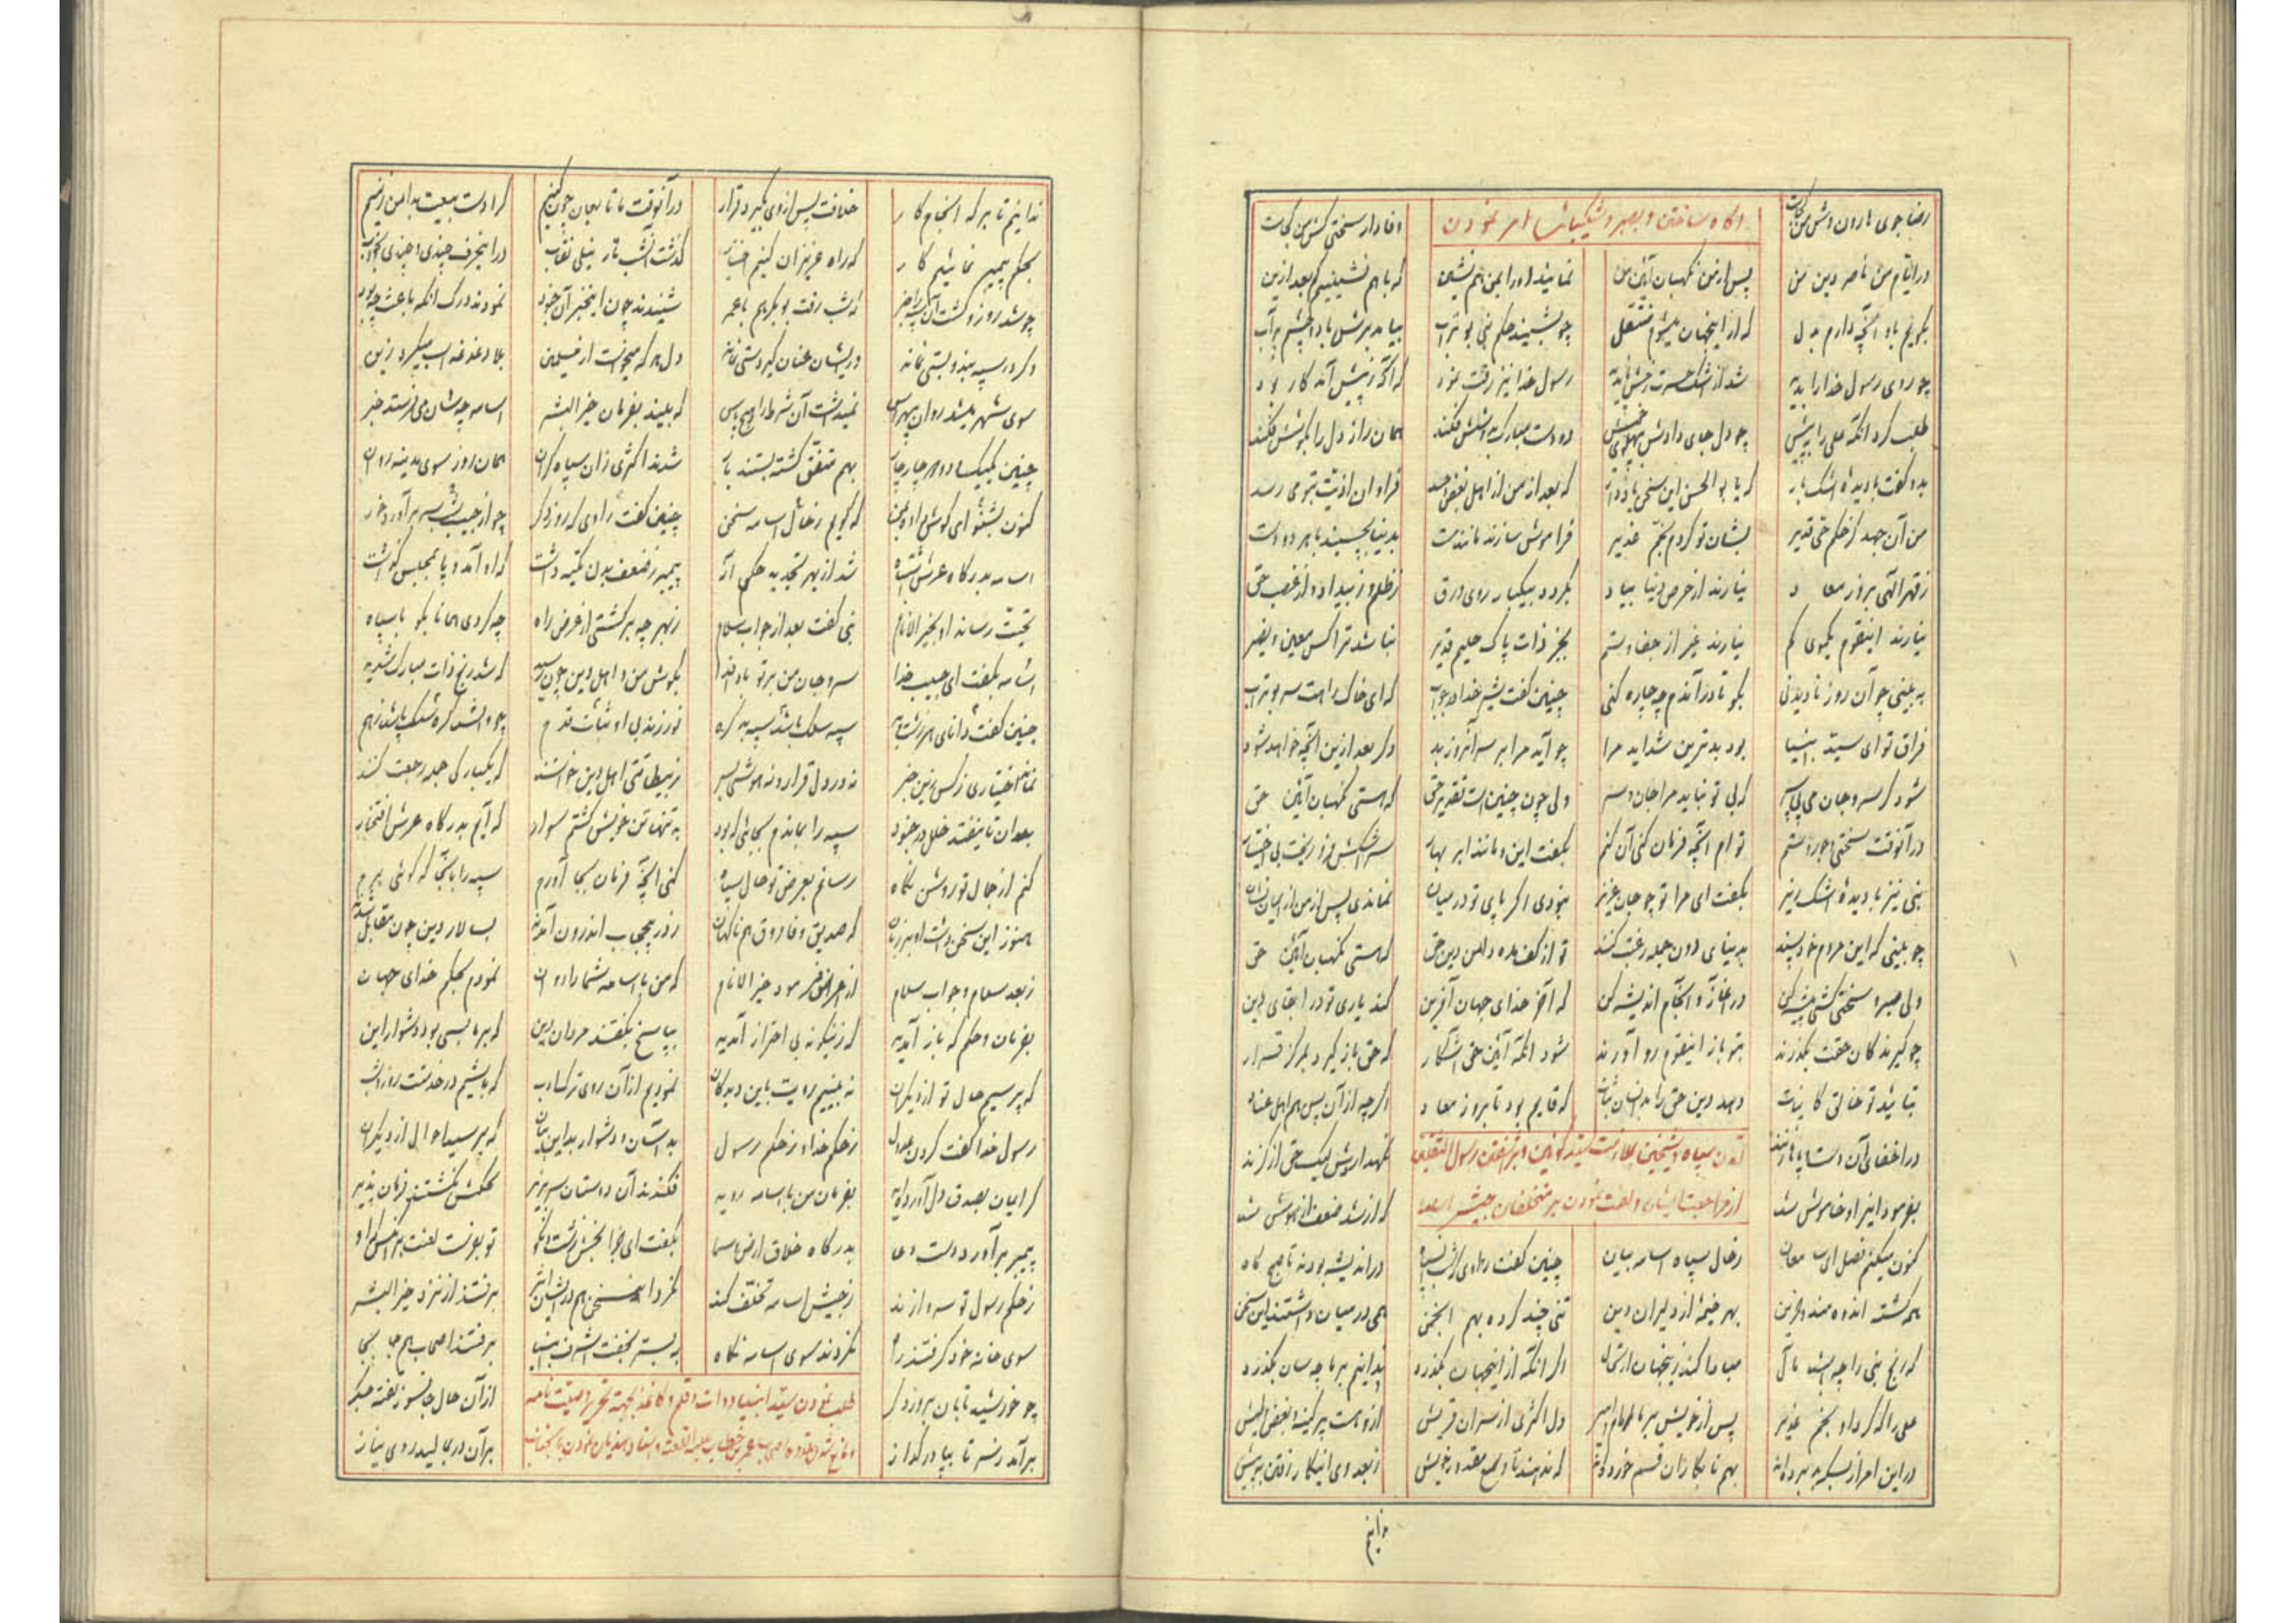 رضا جوی هارون وش من کجاست
آگاه ساختن و بصبر و شکیبائیها امر نمودن
وفادار سختی کش من کجاست
در ایام من ناصر دین من پس از من نگهبان آئین من نمائید او را بمن همنشین که با هم نشینیم بعد ازین
بگویم باو آنچه دارم بدل که از اینجهان میشوم منتقل چو بشنید حکم نبی بوتراب بیامد برش با دو چشم پر آب
چو روی رسول خدا را بدید رسول خدا نیز رقت نمود که آگه ز پیش آمد کار بود
طلب کرد آنگه علی را به پیش چو دل جای دادش به پهلوی خویش دو دست مبارک بدوشش فکند همان راز دل را بگوشش فکند
بدو گفت با دیده اشکبار که یا بوالحسن این سخن یاد دار که بعد از من از اهل بغض و حسد فراوان اذیت بتو می رسد
من آن عهد کز حکم حی قدیر بشان تو کردم بخم غدیر فراموش سازند بدنیا بچسبند با هر دو دست
ز قهر الهی بروز معاد نیارند از حرص دنیا بیاد بگردد بیکبار روی ورق ز ظلم و ز بیداد و از غصب حق
نیارند اینقوم بسوی کم نیارند غیر از جفا و ستم بجز ذات پاک علیم قدیر نباشد ترا کس معین و نصیر
به بینی چو آن روز نادیدنی بگو تا در آندم چه چاره کنی چنین گفت شیر خدا در جواب که ای خاک راهت سر بوتراب
فراق تو ای سید انبیا بود بدترین شداید مرا چو آید مرا بر سر آنروز بد دگر بعد ازین آنچه خواهد شود
شود گر سر و جان می بی سپر که بی تو نباید مرا جان و سر ولی چون چنین است تقدیر حق که هستی نگهبان آئین حق
در آنوقت سختی و جور و ستم توام آنچه فرمان کنی آن کنم بگفت این و مانند ابر بهار سرشکش فرو ریخت بی اختیار
نبی نیز با دیده اشک ریز بگفت ای مرا تو چو جان عزیز نبودی اگر پای تو در میان نماندی پس از من از ایمان نشان
چو بینی که این مردم خود پسند بدنیای دون جمله رغبت کنند تو از کف مده دامن دین حق که هستی نگهبان آئین حق
ولی صبر و سختی کشی پیشه کن در آغاز و انجام اندیشه کن که آخر خدای جهان آفرین کند یاری تو در ابقای دین
چو گیرند کان حقت بگذرند بتو باز اینقوم رو آورند شود آنگه آئین حق آشکار که حق باز گیرد بمرکز قرار
بتائید تو خالق کاینات دهد دین حق را بدانسان ثبات که قایم بود تا بروز معاد اگر چه از آن پس هم اهل عناد
در اخفای آن دست و پا میزنند
نگهدارش لیک حق از گزند
بفرمود این را و خاموش شد
از مراجعت ایشان و لعنت نمودن بر متخلفان جیش اسامه
که از شد ضعف از هوش شد
کنون میکنم نقل ای ز حال سپاه اسامه بیان چنین گفت راوی در اندیشه بودند تا صبحگاه
همه گشته اندوهمند و حزین بهر خیمه از دلیران دین تنی چند کرده بهم انجمن همی در میان داشتند این سخن
که رنج نبی را چه باشد مآل مبادا کند زینجهان ارتحال اگر آنکه از اینجهان بگذرد ندانیم بر ما چه سان بگذرد
علی را که کرد او بخم غدیر پس از خویش بر ما امام و امیر دل اکثری از سران قریش ازو هست پر کینه و بغض و طیش
در این امر از بسکه بد برده اند بهم نابکاران قسم خورده اند که ندهند تا وسع مقدور خویش ز بعد وی اینکار رفتن به پیش
ندانیم
ندانیم تا بر که انجام کار خلافت پس از وی بگیرد قرار در آنوقت ما تابعان چون کنیم کرا دست بیعت بدامن زنیم
بحکم پیمبر نمائیم کار که راه عزیزان کنیم اختیار گذشت آنشب تار نیلی نقاب در اینحرف چندی و چندی بخواب
چو شد روز و گشت آن سپه را خبر که شب رفت بوبکر هم با عمر شنیدند چون اینخبر آن جنود نمودند درک آنکه باعث چه بود
دگر در سپه بند و بستی نماند ور ایشان عنان گیر دستی نماند دل هر که میخواست از مسلمین بلا دغدغه اسب میکرد زین
سوی شهر میشد روان بی هراس نمیداشت آن شرط را هیچ پاس که بیند بفرمان خیر البشر اسامه چه شان می فرستد خبر
چنین یک بیک دو و چار چار بهم متفق گشته بستند بار شدند اکثری زان سپاه گران همان روز سوی مدینه روان
کنون بشنو ای گوش دل که گویم ز حال اسامه سخن چنین گفت راوی که روز دگر چو از جیب شب سر بر آورد خور
اسامه بدرگاه عرش اشتباه شد از بهر تجدید حکمی پیمبر ز ضعف بدن تکیه داشت که او آمد و پا بمجلس گذاشت
تحیت رساند او بخیر الانام نبی گفت بعد از جواب سلام ز بهر چه برگشتی از عرض راه چه کردی همانا بگو با سپاه
اسامه بگفت ای حبیب خدا سر و جان من بر تو بادا فدا بگوش من و اهل دین چون رسید که شد رنج ذات مبارک شدید
چنین گفت دانای هر سپه سلک باشد سپهبد گره نورزند بی او ثبات قدم
نماند اختیاری ز کس زین خبر نه در دل قرار و نه هوشی بسر ز بیطاقتی اهل دین خواستند که یکبارگی جمله رجعت کنند
بعد آن تا نیفتد خلل در جنود سپه را بماندم بجائی که بود به تنها تن خویش گشتم سوار که آیم بدرگاه عرش افتخار
کنم از جمال تو روشن نگاه رسانم بعرض تو حال سپاه کنی آنچه فرمان بجا آورم سپه را بآنجا که گوئی برم
هنوز این سخن داشت او بر زبان که صدیق و فاروق هم ناگهان ز در بیحجاب اندرون آمدند بسالار دین چون مقابل شدند
ز بعد سلام و جواب سلام از اعراض فرمود خیر الانام که من با اسامه شما را روان نمودم بحکم خدای جهان
بفرمان و حکم که باز آمدید که زینگونه بی احتراز آمدید بپاسخ بگفتند مردان دین که بر ما بسی بود دشوار این
که پرسیم حال تو از دیگران نه بینیم رویت باین دیدگان نمودیم از آن روی ترک ادب که باشیم در خدمت روز و شب
رسول خدا گفت کردن عدول ز حکم خدا و ز حکم رسول بد آسان و دشوار بد این بیان که پرسید احوال از دیگران
گر ایمان بصدق دل آورده اید بفرمان من با اسامه روید فکندند آن دوستان سر بزیر بحکمش نگشتند فرمان پذیر
پیمبر بر آورد دست دعا بدرگاه خلاق ارض و سما بگفت ای جزا بخش زشت و نکو تو بفرست لعنت بر آنکس که او
ز حکم رسول تو سر وا زند ز جیش اسامه تخلف کند نکرد این سخن هم در ایشان اثر برفتند از نزد خیر البشر
سوی خانه خود گرفتند راه نکردند سوی اسامه نگاه به بستر بخفت اشرف انبیا برفتند اصحاب هم جا بجا
چو خورشید تابان بروز دگر
طلب نمودن سید انبیا دوات و قلم و کاغذ بجهة تحریر وصیت نامه
از آن حال جانسوز تفته جگر
بر آمد ز سر تا بپا در گداز
بر آن در بمالید روی نیاز